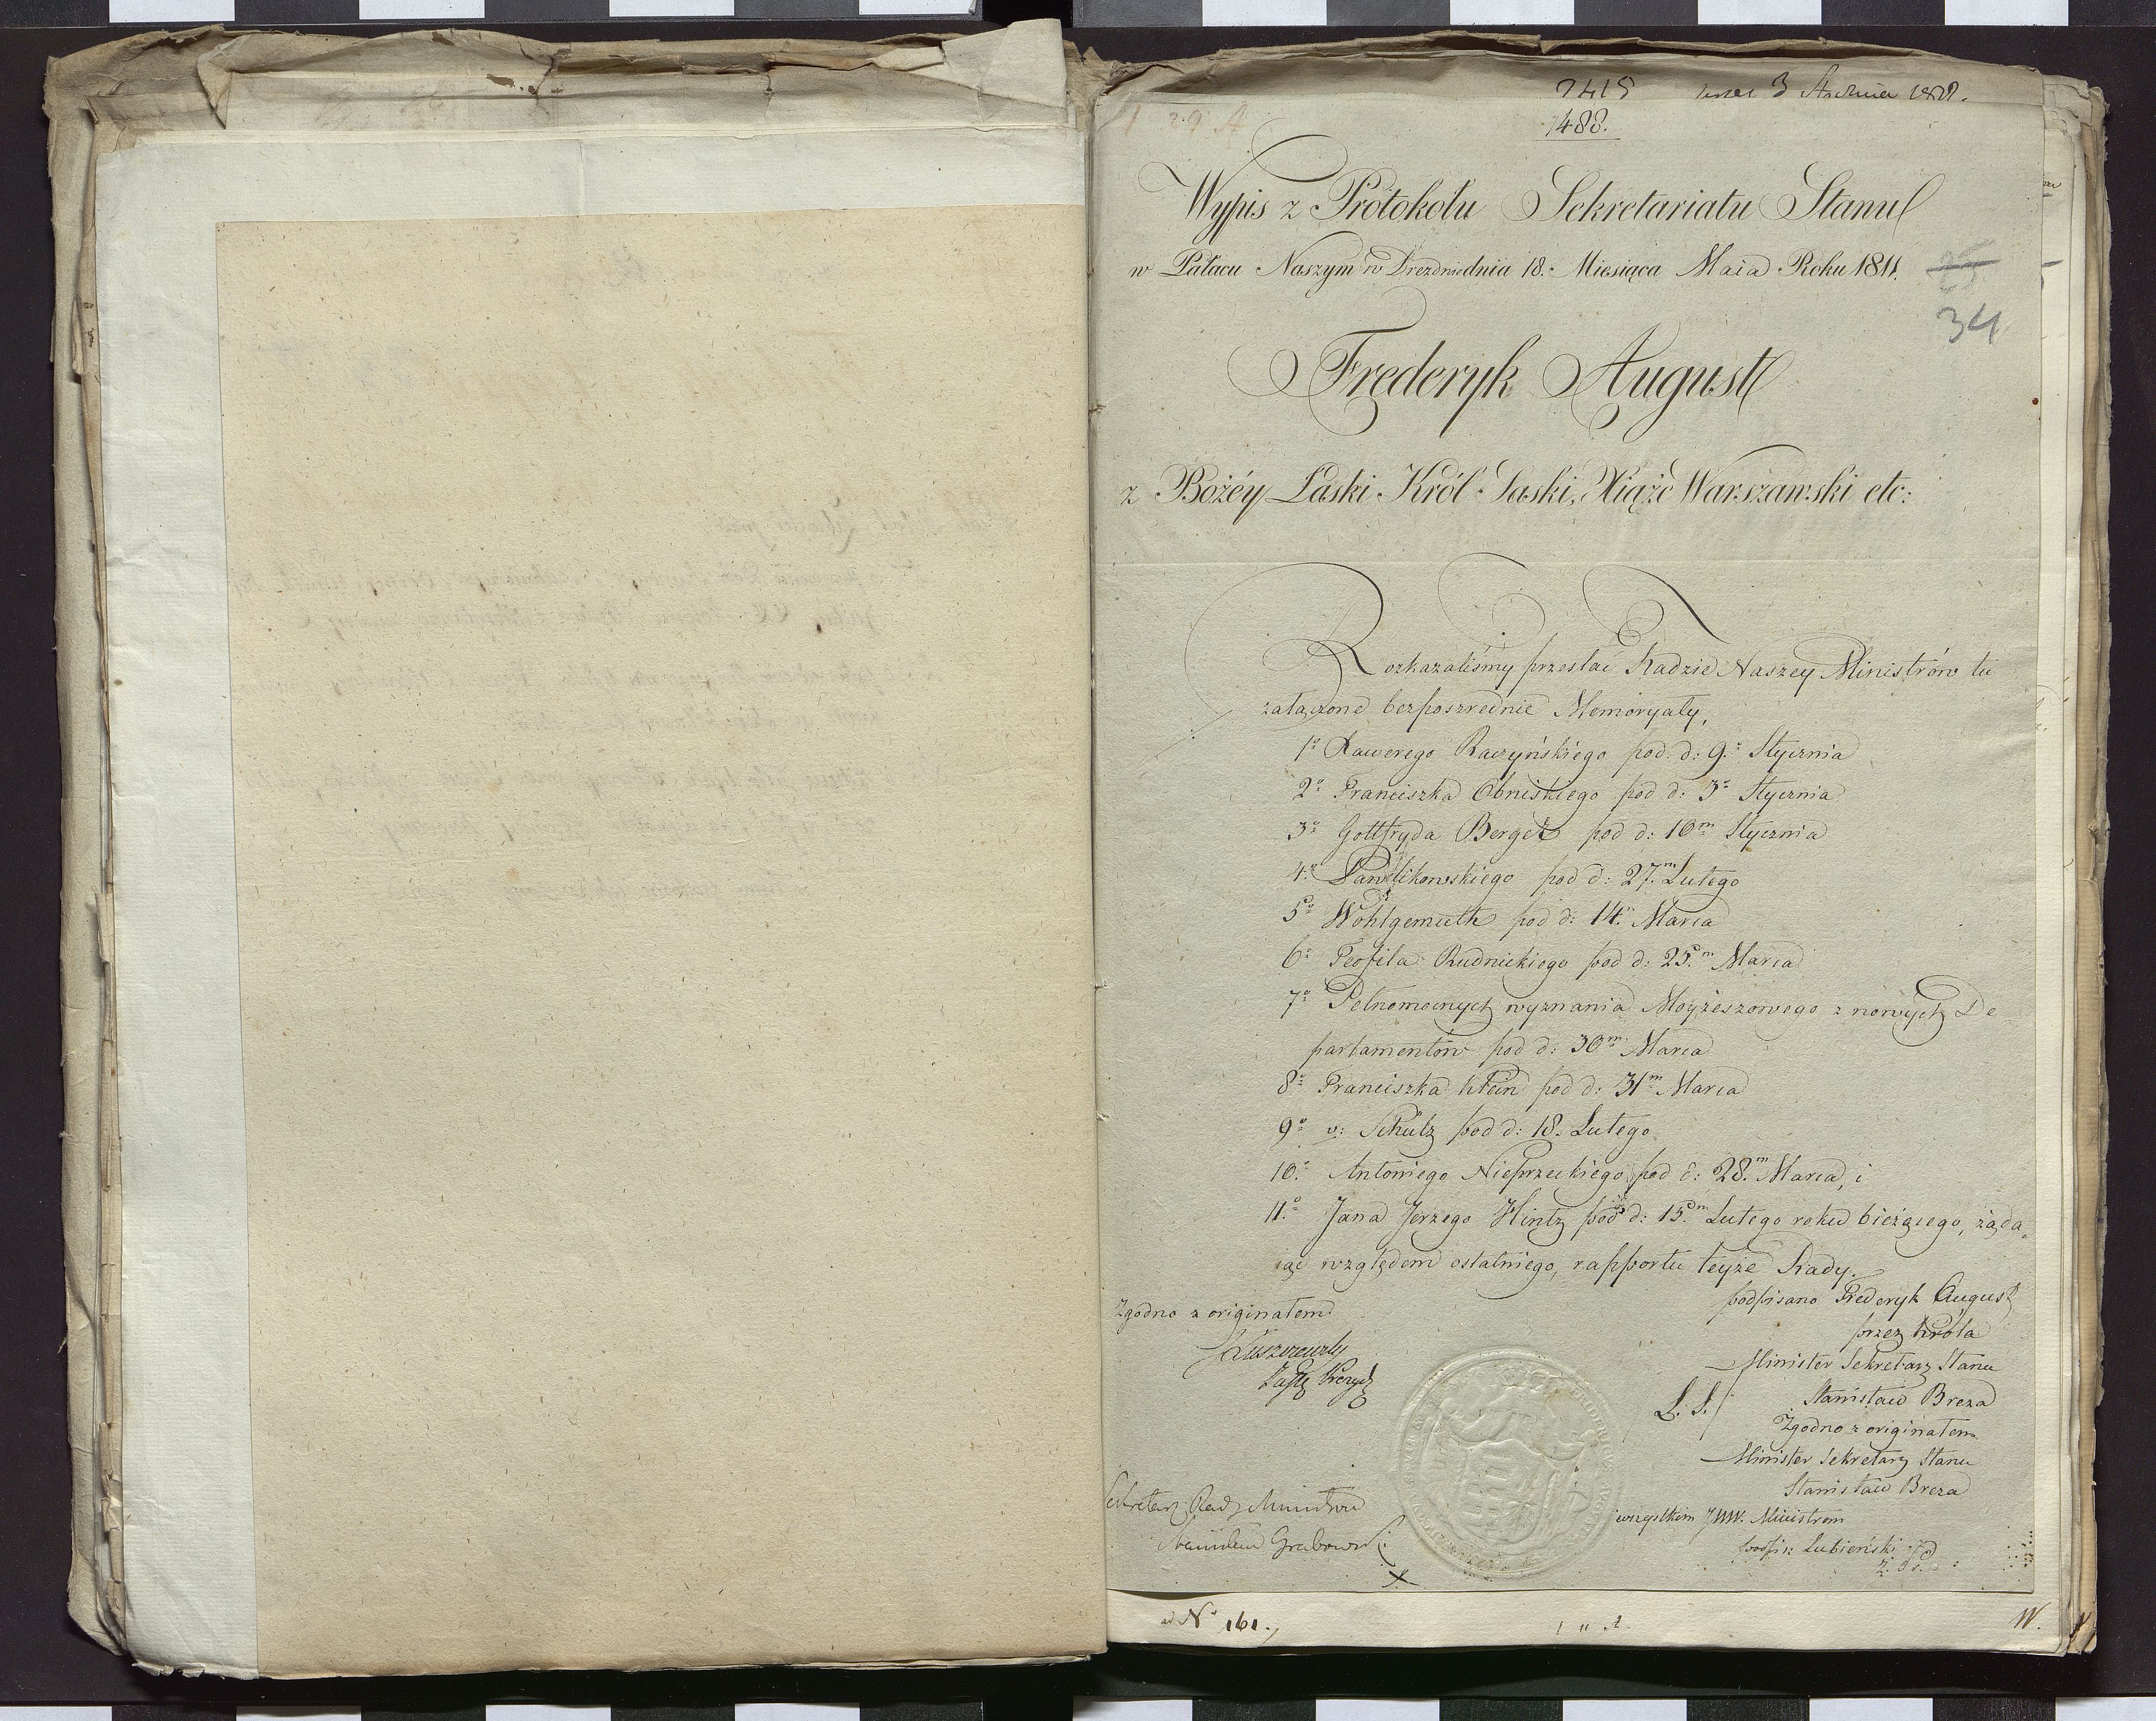 2415
1488.
1 29 A
Wypis z Protokołu Sekretariatu Stanu
w Pałacu Naszym w Dreznie dnia 18. Miesiąca Maia Roku 1811.
34
Frederyk August
z Bożéy Łaski Król Saski, Xiąże Warszawski etc:
Rozkazaliśmy przesłać Radzie Naszey Ministrów tu
załączone bezposzrednie Memoryały,
1o Xawerego Raczyńskiego pod d: 9o Stycznia
2o Franciszka Obniskiego pod d: 3o Stycznia
3o Gottfryda Berger pod d: 10m Stycznia
4o Pawlikowskiego pod d: 27m Lutego
5o Wohlgemuth pod d: 14. Marca
6o Teofila Rudnickiego pod d: 25m Marca
7o Pełnomocnych wyznania Moyżeszowego z nowych De
partamentów pod d: 30m Marca
8o Franciszka Klein pod d: 31m Marca
9o v: Schütz pod d: 18. Lutego
10o Antoniego Nieprzeckiego pod d: 28m Marca, i
11o Jana Jerzego Hintz pod d: 15m Lutego roku bieżącego, żąda,
iąc względem ostatniego, rapportu teyże Rady.
podpisano Frederyk August
przez Króla
Minister Sekretarz Stanu
L. S. Stanisław Breza
Zgodno z originałem
Minister Sekretarz Stanu
Stanisław Breza
Zgodno z originałem
Sekretarz Rady Ministrów
Stanisław Grabowski
wszystkim JWW. Ministrom
podpis: Lubieński
ad No 161.
1 " A.
W.